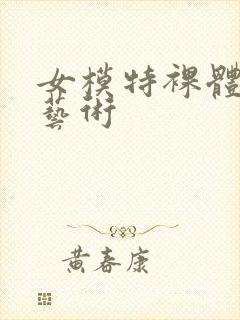 女模特裸體
藝術
黃春康